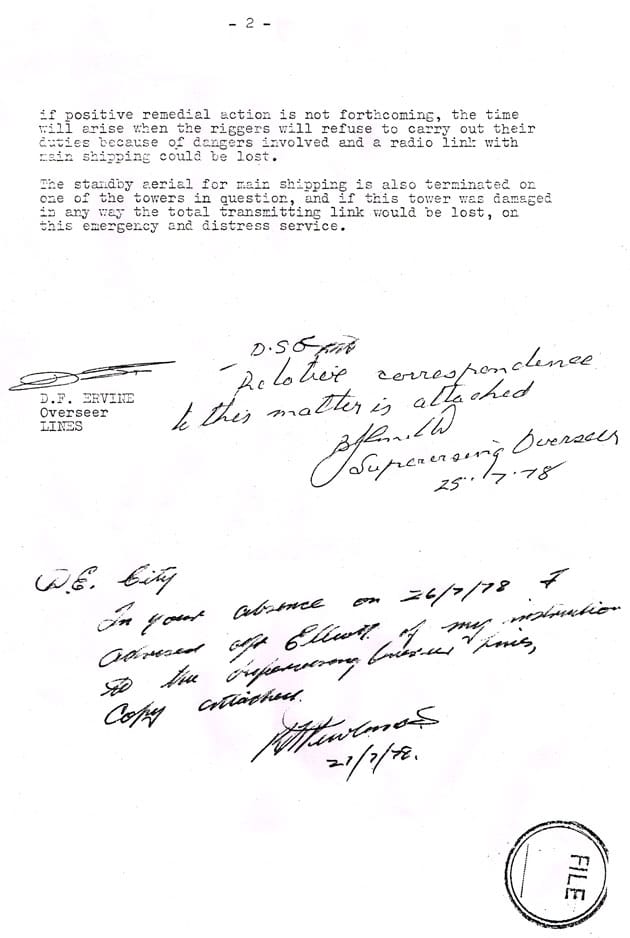 - 2 -
if positive remedial action is not forthcoming, the time
will arise when the riggers will refuse to carry out their
duties because of dangers involved and a radio link with
main shipping could be lost.
The standby aerial for main shipping is also terminated on
one of the towers in question, and if this tower was damaged
in any way the total transmitting link would be lost, on
this emergency and distress service.
D.F. ERVINE
Overseer
LINES
D.S.E
Relative correspondence
to this matter is attached
Supervising Overseer
25.7.78
D.E. City
In your absence on 26/7/78 I
advised Elliott of my instruction
to the Supervising Overseer Lines,
Copy attached.
27/7/78.
FILE